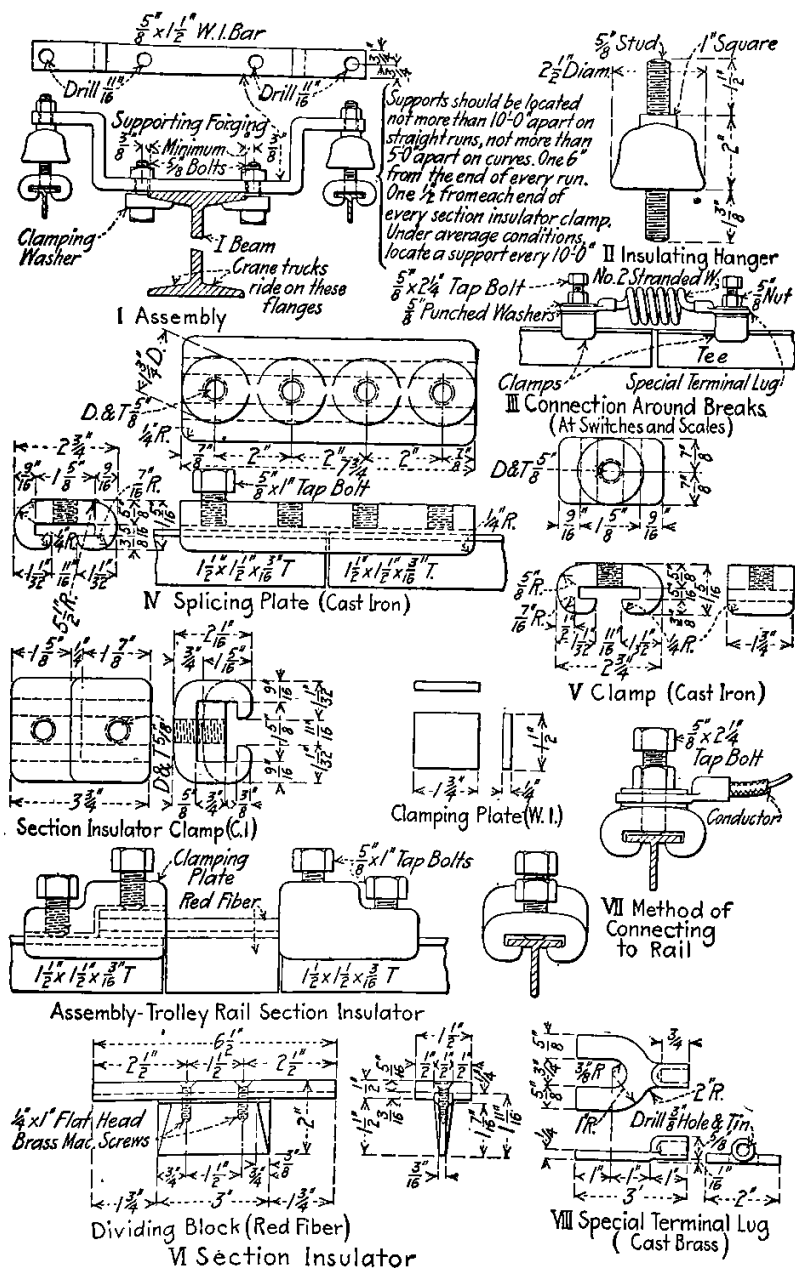 5/8" x 1 1/2" W.I. Bar
3/4"
3/4"
Drill 11/16"
Drill 11/16"
3/8"
Supporting Forging
3/8"
Minimum
5/8 Bolts
Clamping
Washer
I Beam
Crane trucks
ride on these
flanges
I Assembly
Supports should be located
not more than 10'-0" apart on
straight runs, not more than
5'-0" apart on curves. One 6"
from the end of every run.
One 1/2" from each end of
every section insulator clamp.
Under average conditions,
locate a support every 10'-0"
5/8" Stud
1" Square
2 1/2" Diam.
1 1/2"
2"
II Insulating Hanger
5/8" x 2 1/4" Tap Bolt
No. 2 Stranded W.
5/8" Nut
5/8" Punched Washers
Tee
Clamps
Special Terminal Lug
III Connection Around Breaks
(At Switches and Scales)
1 3/4" D.
D. & T. 5/8"
1/4" R.
7/8"
2"
2"
2"
7/8"
7 3/4"
5/8" x 1" Tap Bolt
2 3/4"
9/16"
1 5/8"
9/16"
7/16" R.
1/4" R.
1 1/32"
11/16"
1 1/32"
1/4" R.
1 1/2" x 1 1/2" x 3/16" T
1 1/2" x 1 1/2" x 3/16" T.
IV Splicing Plate (Cast Iron)
D&T 5/8"
7/8"
7/8"
9/16"
1 5/8"
9/16"
5/8" R.
7/16" R.
1/2"
1 1/32"
11/16"
1 1/32"
1/4" R.
1 5/16"
1 3/4"
2 3/4"
V Clamp (Cast Iron)
1 5/8"
1/4"
1 7/8"
3 3/4"
D & T 5/8"
2 1/16"
3/4"
1 5/16"
9/16"
1 5/8"
9/16"
1 1/32"
11/16"
1 1/32"
5/8"
3/4"
3/8"
Section Insulator Clamp (C.I.)
1 1/2"
1 3/4"
1/4"
Clamping Plate (W.I.)
5/8" x 2 1/4"
Tap Bolt
Conductor
VII Method of
Connecting
to Rail
Clamping
Plate
Red Fiber
5/8" x 1" Tap Bolts
1 1/2" x 1 1/2" x 3/16" T
1 1/2 x 1 1/2 x 3/16 T
Assembly-Trolley Rail Section Insulator
6 1/2"
2 1/2"
1 1/2"
2 1/2"
1/4" x 1" Flat Head
Brass Mac. Screws
2"
3/4"
1 1/2"
3/4"
3/8"
1 3/4"
3"
1 3/4"
1 1/2"
1/2"
1/2"
1/2"
1/4"
1/2"
5/16"
1 1/2"
3/16"
1 7/16"
1 11/16"
3/16"
Dividing Block (Red Fiber)
VI Section Insulator
5/8"
3/4"
5/8"
3/4"
3/8" R
1" R.
2" R.
Drill 3/8" Hole & Tin
1/4"
5/8"
1/16"
1"
1"
1"
3"
2"
VIII Special Terminal Lug
(Cast Brass)